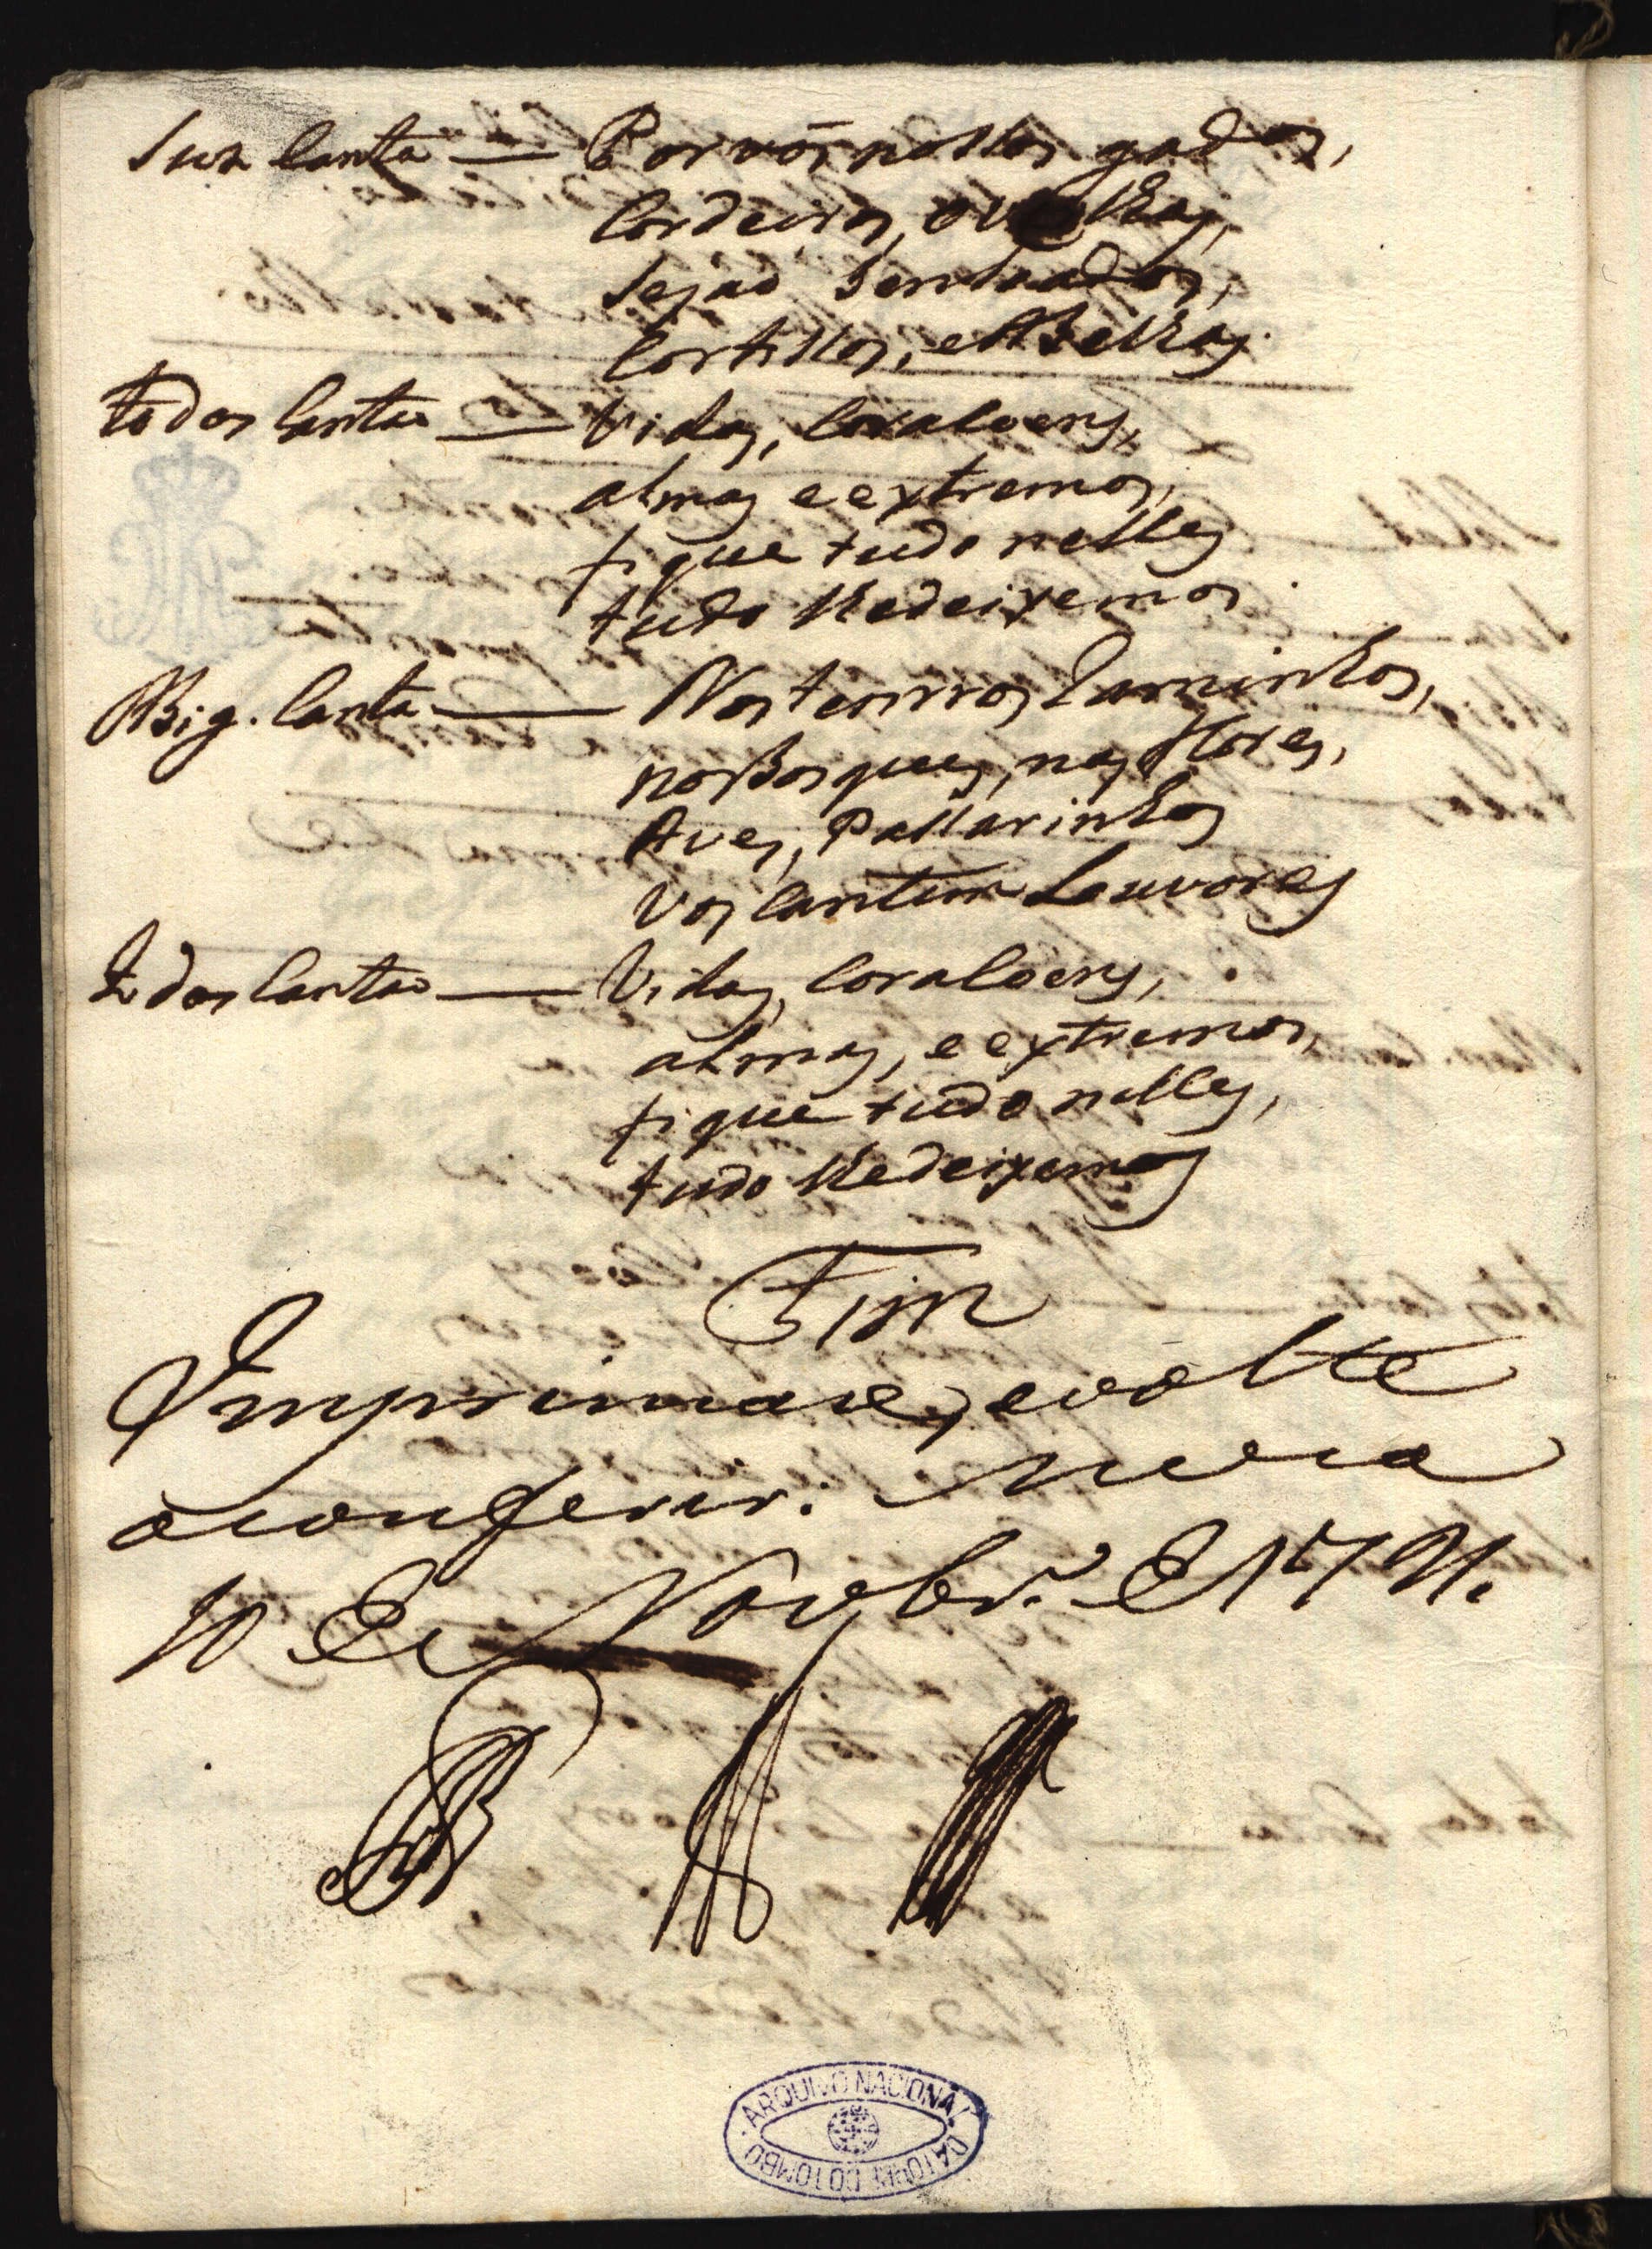 Suz Canta — Por vós nossos gados,
Cordeiros, ovelhas,
Sejaõ Senhaados,
Cortissos, e Abelhas.
todos Cantaõ — Vidas, Coracoens,
almas e extremos,
fique tudo nelles
tudo lhe deixemos.
Big. Canta — Nos tenrros Raminhos,
nos Bosques, nas flores,
Aves, Passarinhos
Vos Cantem Louvores
todos Cantaõ — Vidas, Coracoens,
almas, e extremos,
fique tudo nelles,
tudo lhe deixemos
Fim
Imprimase, e volte
a conferir. Meza
10 de Novbr.º de 1791.
ARQUIVO NACIONAL DA TORRE DO TOMBO